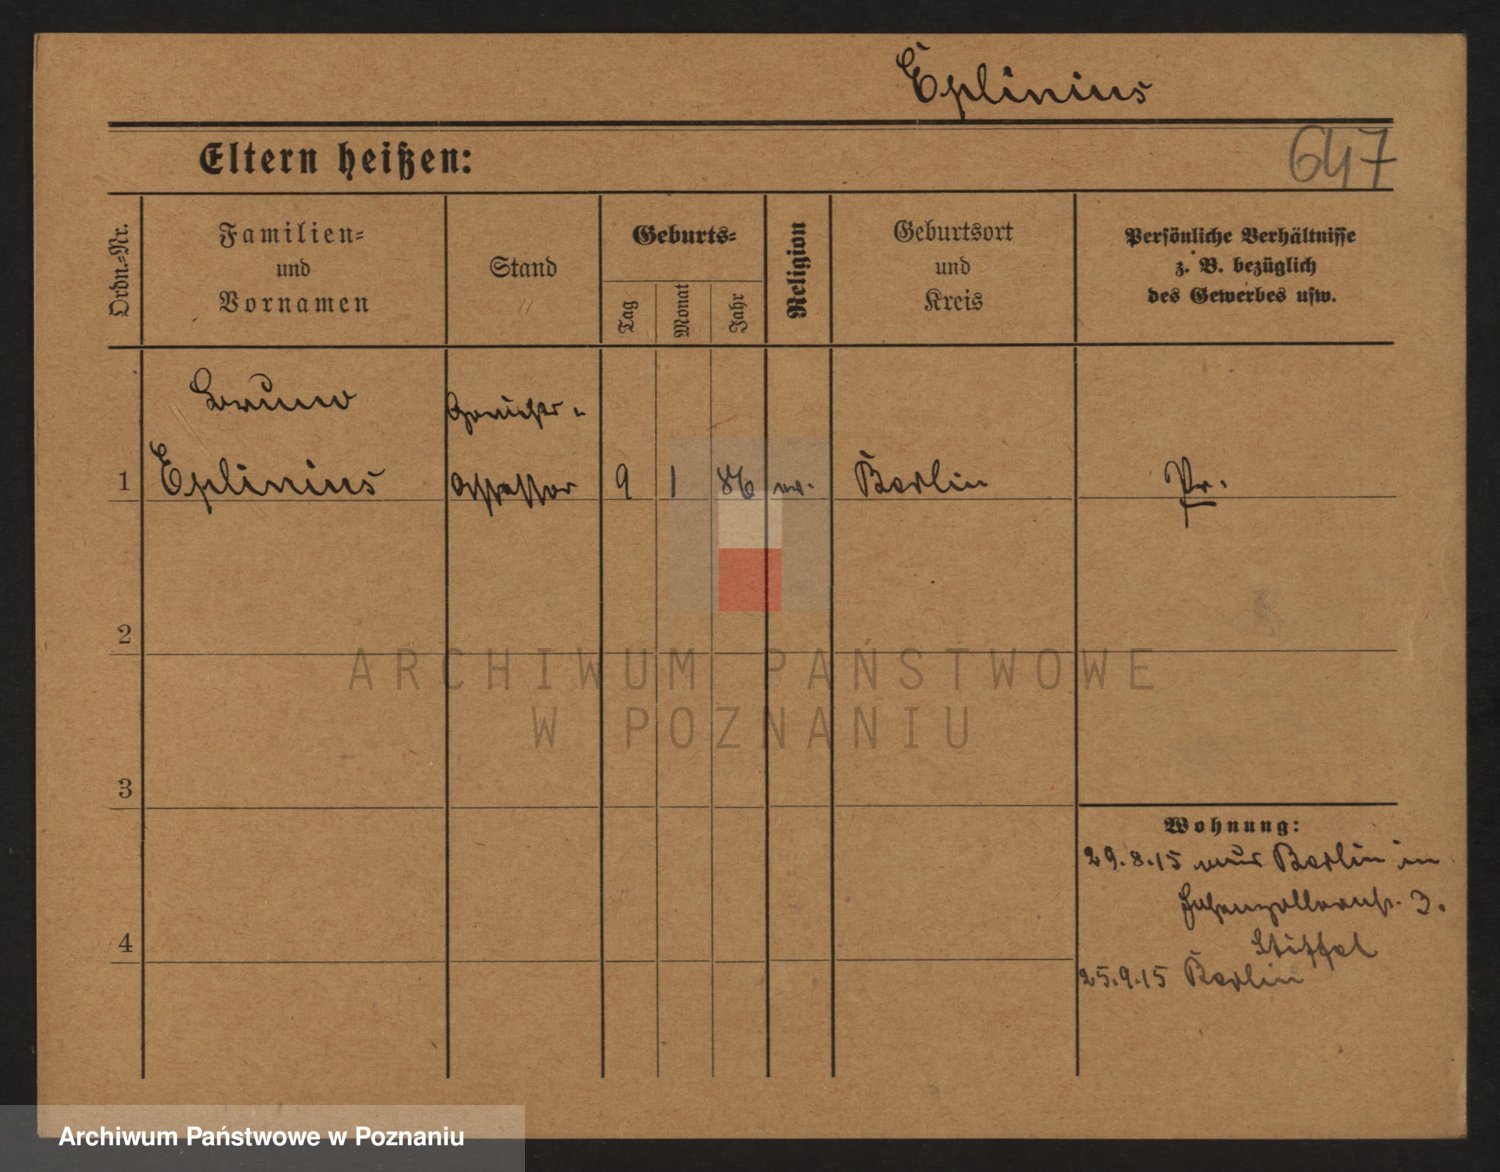 Eplinius
Eltern heißen:
647
Ordn.-Nr.
Familien-
und
Vornamen
Stand
Geburts-
Tag
Monat
Jahr
Religion
Geburtsort
und
Kreis
Persönliche Verhältnisse
z. B. bezüglich
des Gewerbes usw.
Bruno
Gerichts-
1 Eplinius Assessor 9 1 86 ev. Berlin Pr.
2
3
4
Wohnung:
29.8.15 aus Berlin in
Hohenzollernstr. 3.
Stiffel
25.9.15 Berlin
ARCHIWUM PAŃSTWOWE
W POZNANIU
Archiwum Państwowe w Poznaniu